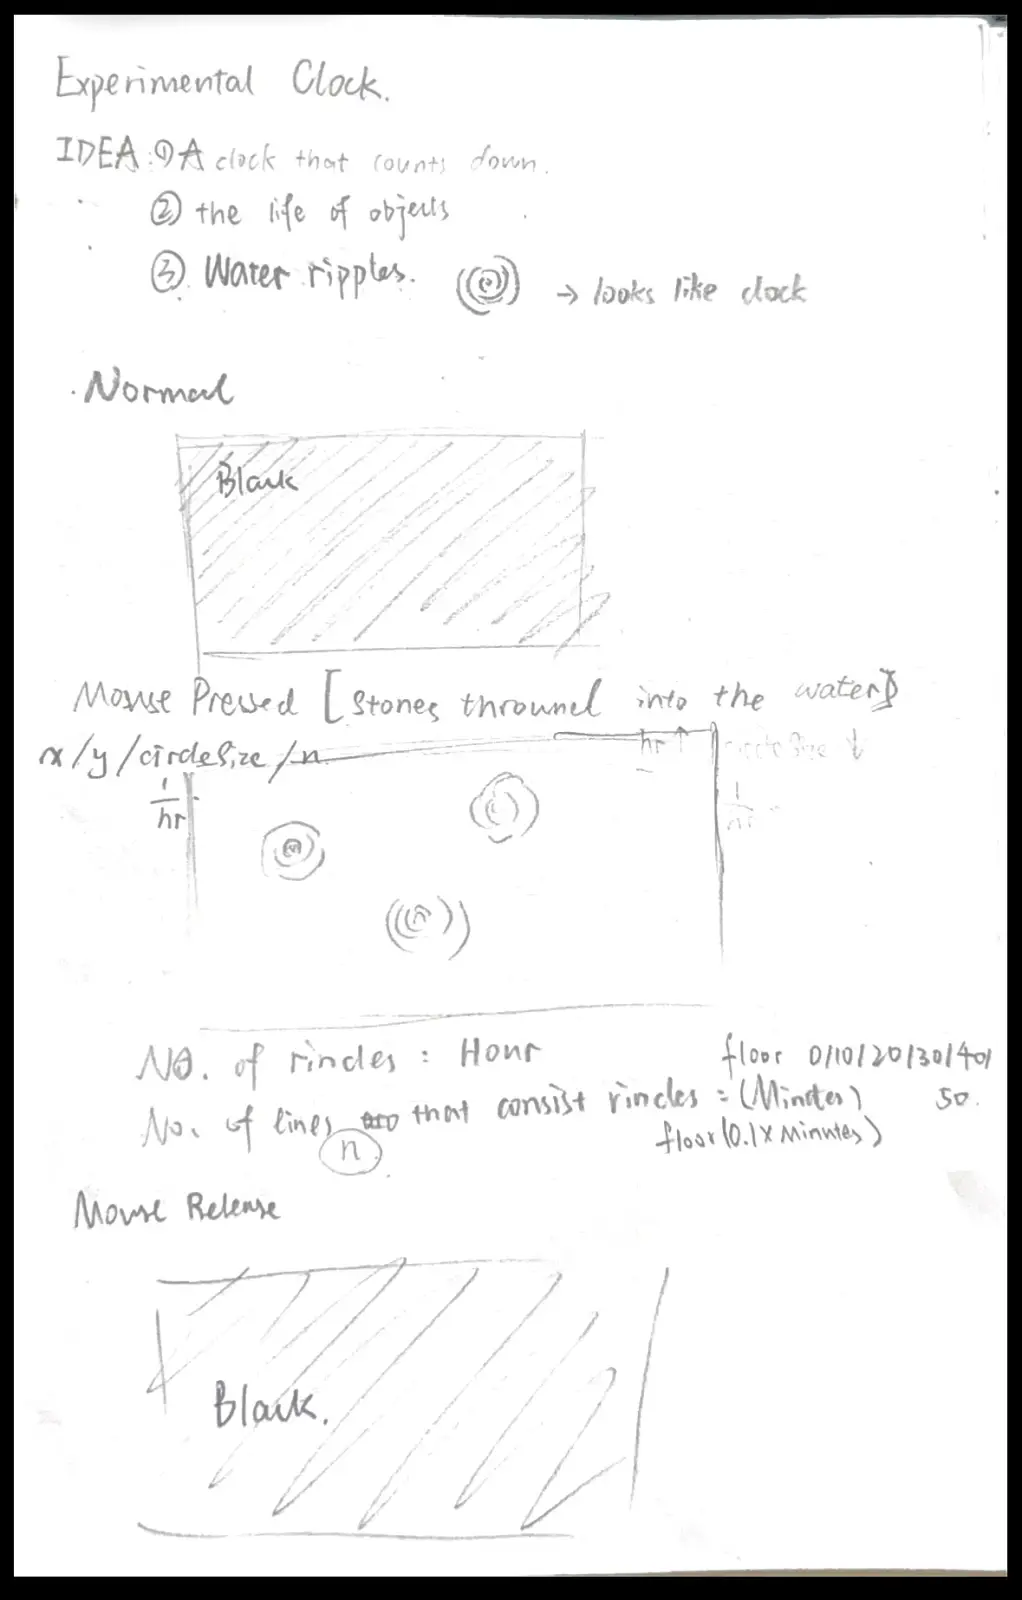 Experimental Clock.
IDEA: ① A clock that counts down.
② the life of objects
③ Water ripples. → looks like clock
Normal
Black
Mouse Pressed [Stones throwned into the water]
x/y/circleSize/n
hr ↑ circleSize ↓
1/hr
1/hr
NO. of rincles : Hour
floor 0/10/20/30/40/
50.
No. of lines that consist rincles = (Mintes)
n
floor(0.1 x Minutes)
Mouse Release
Black.